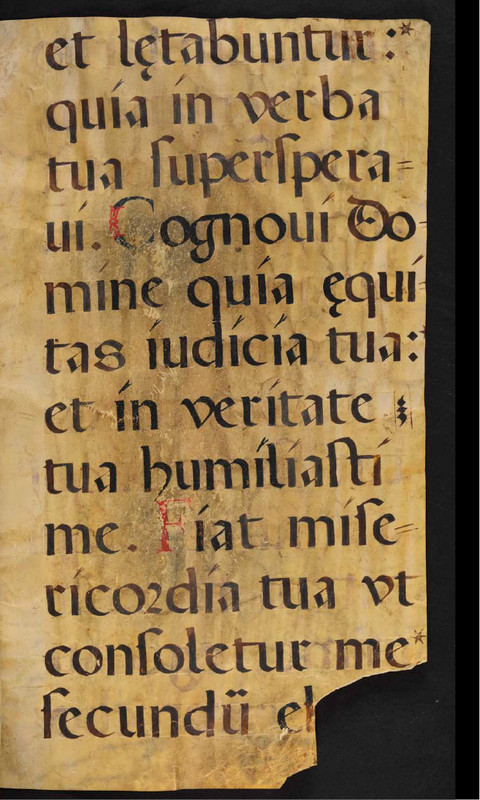 et lętabuntur :*
quia in verba
tua ſuperſpera=
ui. Cognoui Do=
mine quia ęqui=
tas iudicia tua:
et in veritate
tua humiliaſti
me. Fiat miſe=
ricoꝛdia tua vt
conſoletur me*
ſecundū el